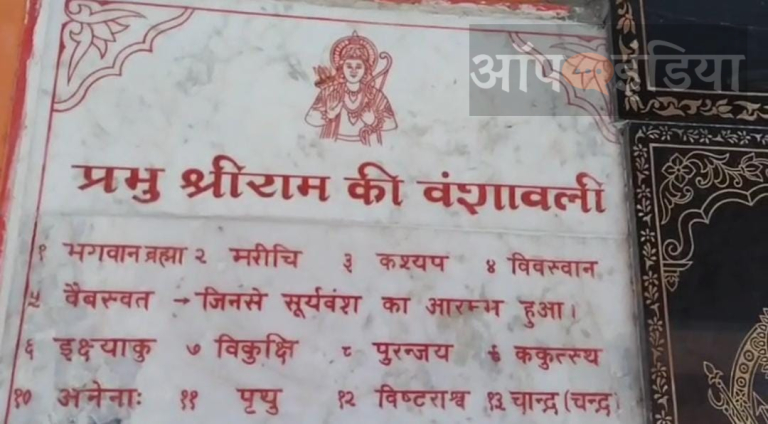 ऑपइंडिया
प्रभु श्रीराम की वंशावली
१ भगवान ब्रह्मा २ मरीचि ३ कश्यप ४ विवस्वान
५ वैबस्वत → जिनसे सूर्यवंश का आरम्भ हुआ।
६ इक्ष्याकु ७ विकुक्षि ८ पुरन्जय ९ ककुत्स्थ
१० अनेनाः ११ पृथु १२ विष्टराश्व १३ चान्द्र (चन्द्र)